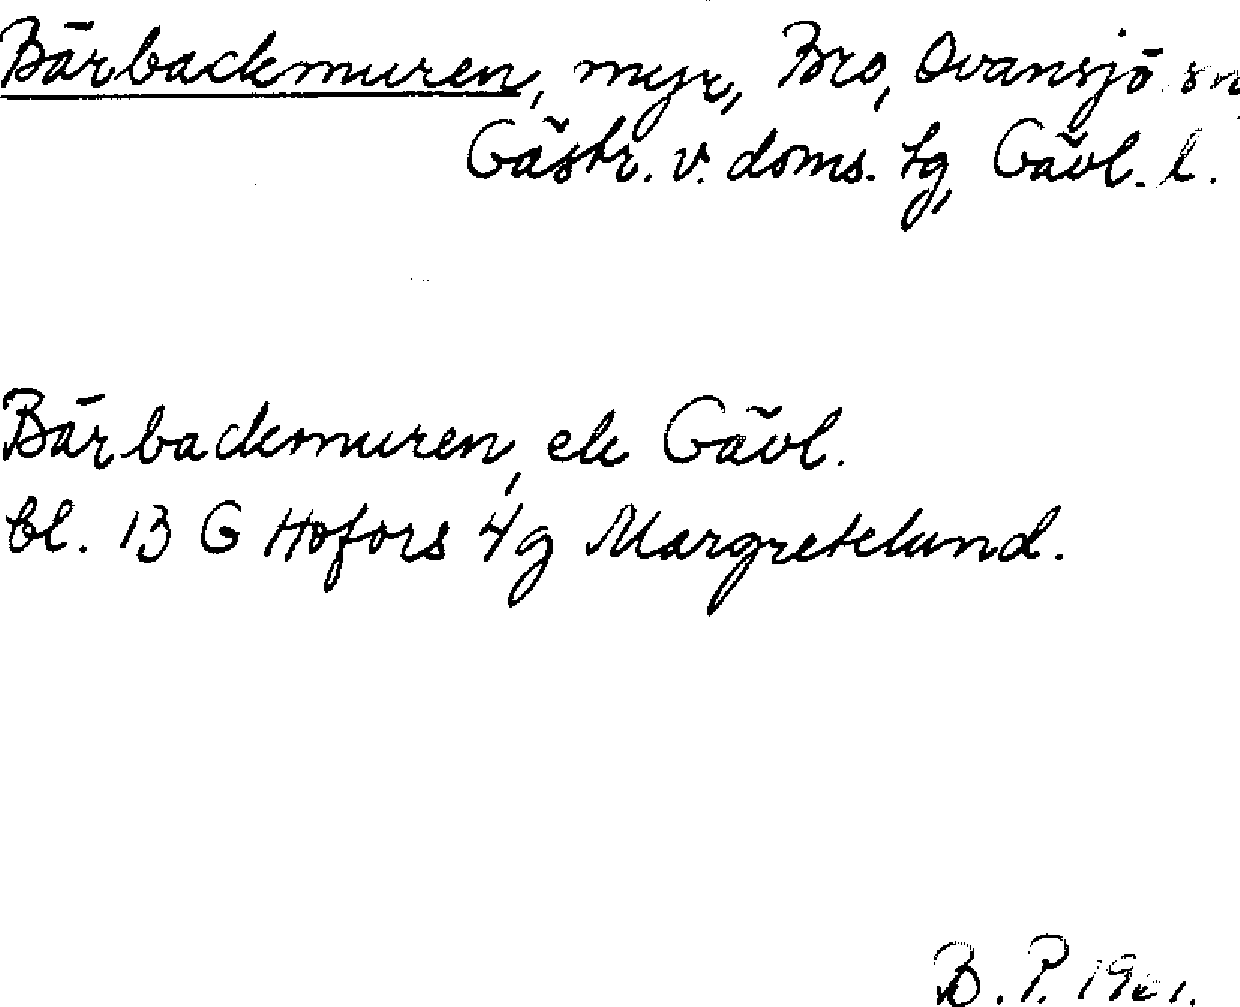 Bärbackmuren, myr, Bro, Ovansjö sn,
Gästr. v. doms. tg, Gävl. l.
Bärbackmuren, ek Gävl.
bl. 13 G Hofors 4g Margretelund.
B. P. 1961.